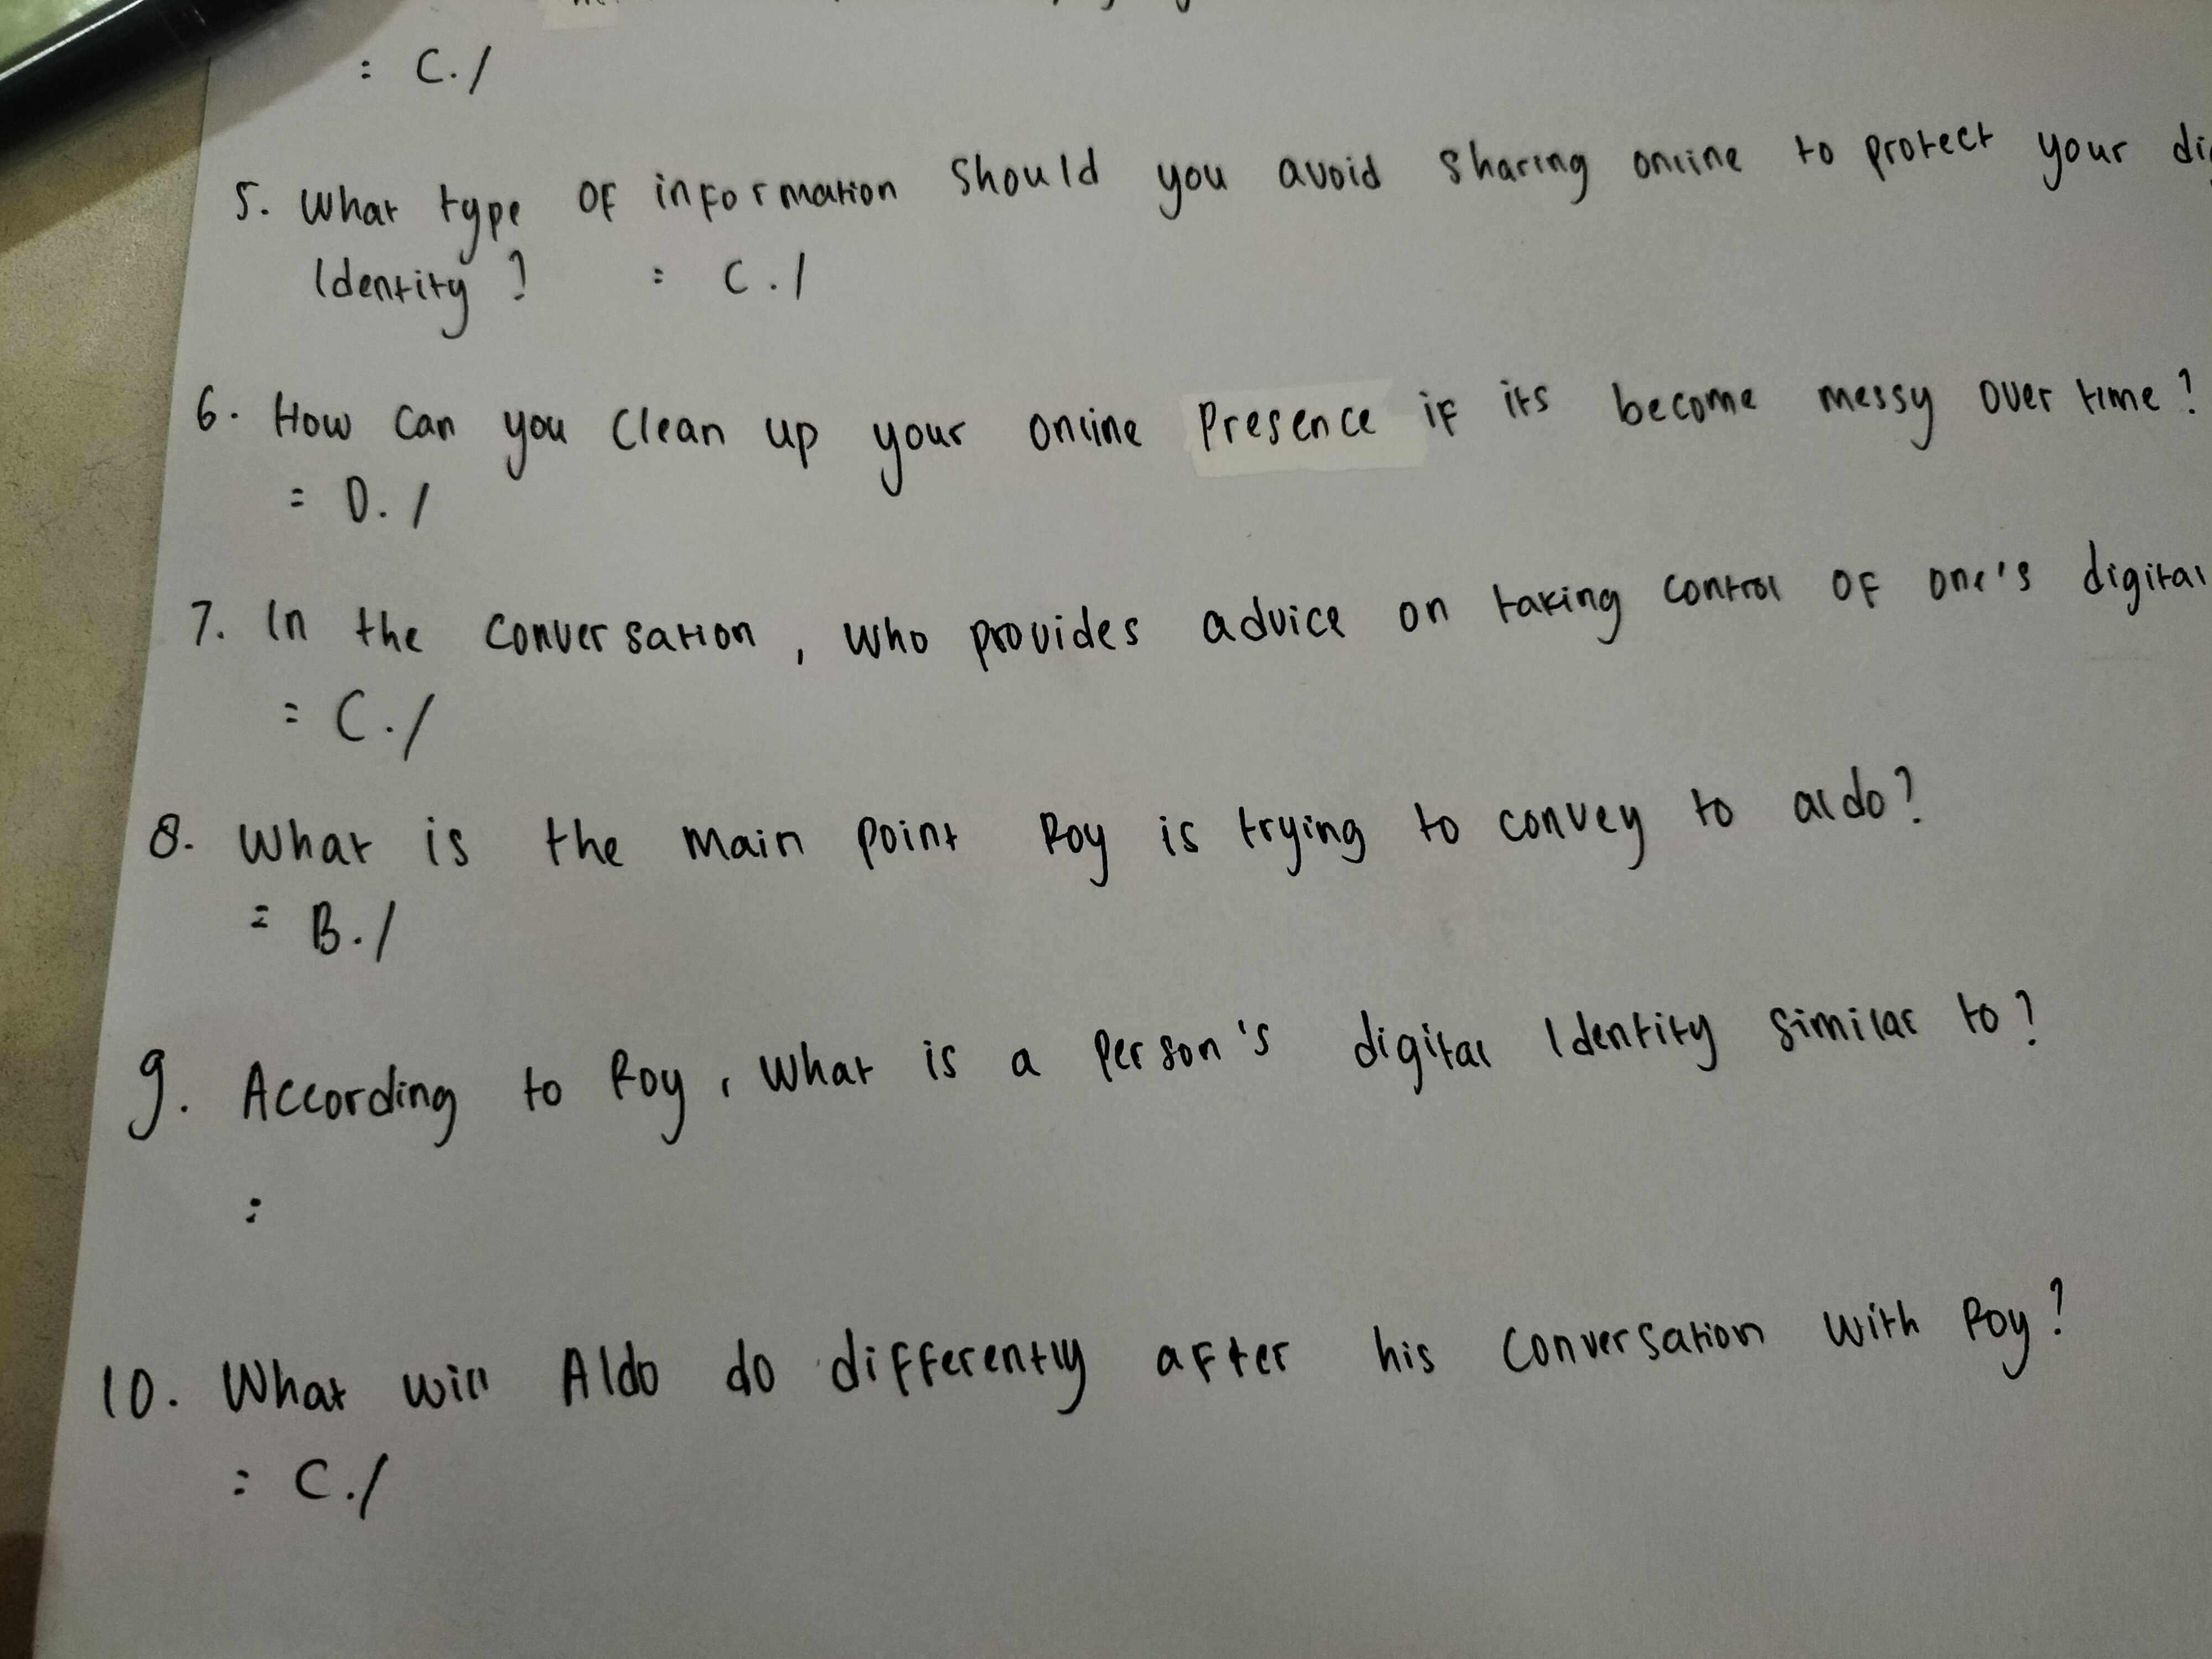 = C./
5. What type of information should you avoid sharing online to protect your
Identity? = C./
6. How can you clean up your online Presence if its become messy over time?
= D./
7. In the conversation, who provides advice on taking control of one's digital
= C./
8. What is the main point Roy is trying to convey to aldo?
= B./
9. According to Roy, what is a person's digital Identity similar to?
=
10. What will Aldo do differently after his conversation with Roy?
= C./